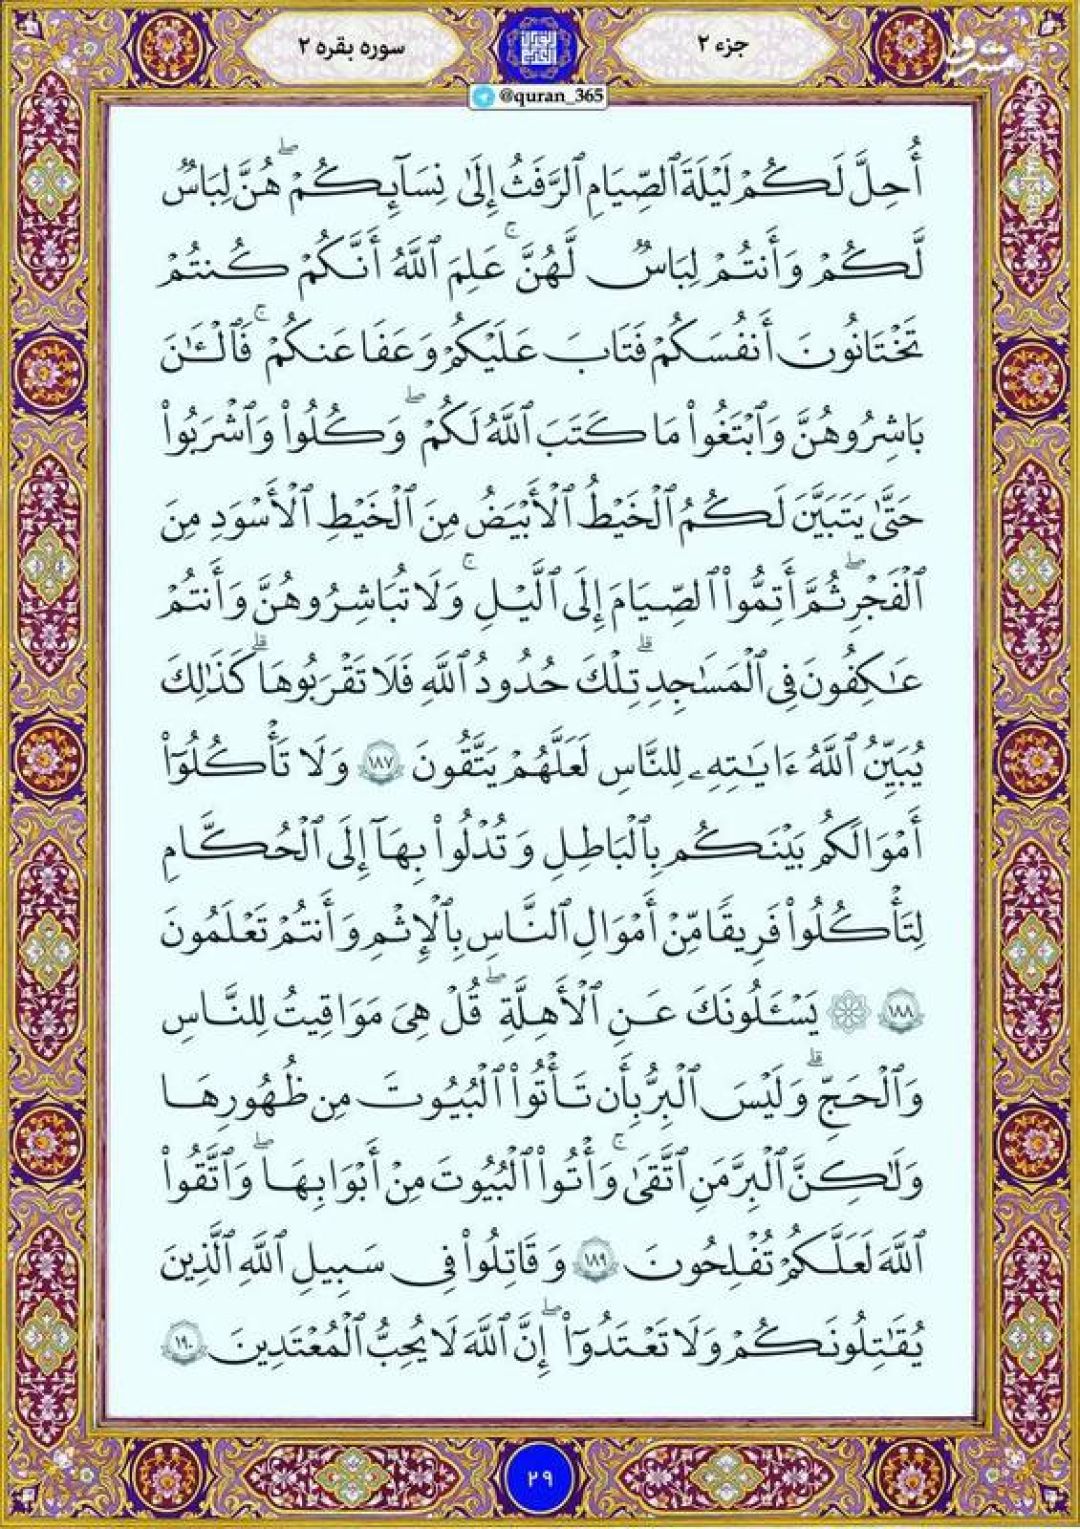 جزء ۲
سوره بقره ۲
@quran_365
أُحِلَّ لَكُمۡ لَيۡلَةَ ٱلصِّيَامِ ٱلرَّفَثُ إِلَىٰ نِسَآئِكُمۡۚ هُنَّ لِبَاسٞ
لَّكُمۡ وَأَنتُمۡ لِبَاسٞ لَّهُنَّۗ عَلِمَ ٱللَّهُ أَنَّكُمۡ كُنتُمۡ
تَخۡتَانُونَ أَنفُسَكُمۡ فَتَابَ عَلَيۡكُمۡ وَعَفَا عَنكُمۡۖ فَٱلۡـَٰٔنَ
بَٰشِرُوهُنَّ وَٱبۡتَغُواْ مَا كَتَبَ ٱللَّهُ لَكُمۡۚ وَكُلُواْ وَٱشۡرَبُواْ
حَتَّىٰ يَتَبَيَّنَ لَكُمُ ٱلۡخَيۡطُ ٱلۡأَبۡيَضُ مِنَ ٱلۡخَيۡطِ ٱلۡأَسۡوَدِ مِنَ
ٱلۡفَجۡرِۖ ثُمَّ أَتِمُّواْ ٱلصِّيَامَ إِلَى ٱلَّيۡلِۚ وَلَا تُبَٰشِرُوهُنَّ وَأَنتُمۡ
عَٰكِفُونَ فِي ٱلۡمَسَٰجِدِۗ تِلۡكَ حُدُودُ ٱللَّهِ فَلَا تَقۡرَبُوهَاۗ كَذَٰلِكَ
يُبَيِّنُ ٱللَّهُ ءَايَٰتِهِۦ لِلنَّاسِ لَعَلَّهُمۡ يَتَّقُونَ ١٨٧ وَلَا تَأۡكُلُوٓاْ
أَمۡوَٰلَكُم بَيۡنَكُم بِٱلۡبَٰطِلِ وَتُدۡلُواْ بِهَآ إِلَى ٱلۡحُكَّامِ
لِتَأۡكُلُواْ فَرِيقٗا مِّنۡ أَمۡوَٰلِ ٱلنَّاسِ بِٱلۡإِثۡمِ وَأَنتُمۡ تَعۡلَمُونَ
١٨٨ ۞ يَسۡـَٔلُونَكَ عَنِ ٱلۡأَهِلَّةِۖ قُلۡ هِيَ مَوَٰقِيتُ لِلنَّاسِ
وَٱلۡحَجِّۗ وَلَيۡسَ ٱلۡبِرُّ بِأَن تَأۡتُواْ ٱلۡبُيُوتَ مِن ظُهُورِهَا
وَلَٰكِنَّ ٱلۡبِرَّ مَنِ ٱتَّقَىٰۚ وَأۡتُواْ ٱلۡبُيُوتَ مِنۡ أَبۡوَٰبِهَاۖ وَٱتَّقُواْ
ٱللَّهَ لَعَلَّكُمۡ تُفۡلِحُونَ ١٨٩ وَقَٰتِلُواْ فِي سَبِيلِ ٱللَّهِ ٱلَّذِينَ
يُقَٰتِلُونَكُمۡ وَلَا تَعۡتَدُوٓاْۚ إِنَّ ٱللَّهَ لَا يُحِبُّ ٱلۡمُعۡتَدِينَ ١٩٠
۲۹